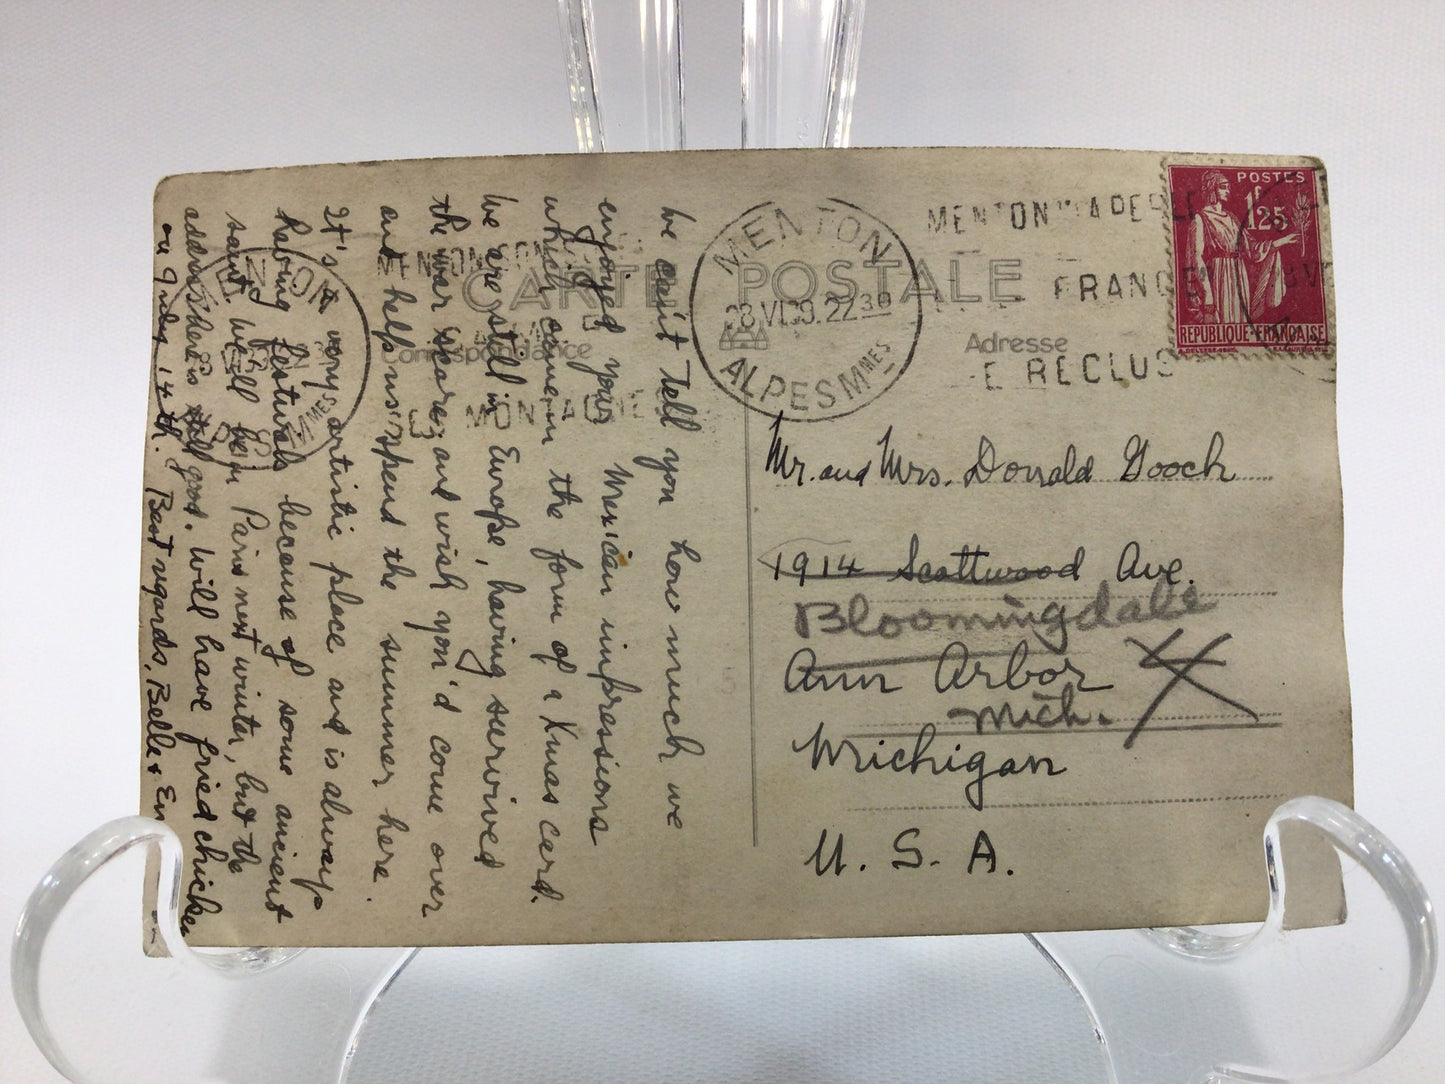 We can't tell you how much we
enjoyed your Mexican impressions
which came in the form of a Xmas card.
We are still in Europe, having survived
the war scare, and wish you'd come over
and help us spend the summer here.
It's a very artistic place and is always
having festivals because of some ancient
saint. We'll be in Paris next winter, but the
address here is still good. Will have fried chicken
on July 14th. Best regards, Belle &
CARTE POSTALE
Correspondance
Adresse
MENTON
ALPES Mmes
22 30
MENTON
FRANCE
E RECLUS
MENTON
MONTAGNE
MENTON
Mmes
POSTES
1f25
REPUBLIQUE FRANÇAISE
Mr. and Mrs. Donald Gooch
1914 Scottwood Ave.
Bloomingdale
Ann Arbor
Mich.
Michigan
U. S. A.